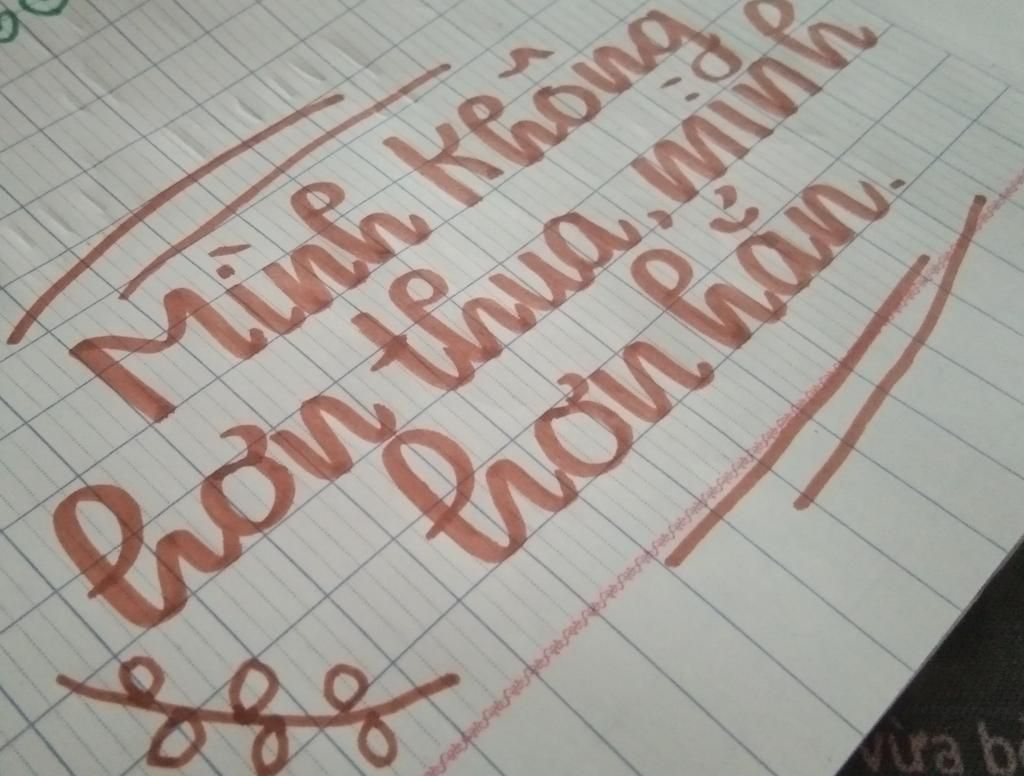 Mình không
hơn thua, mình
hơn hẳn.
vừa